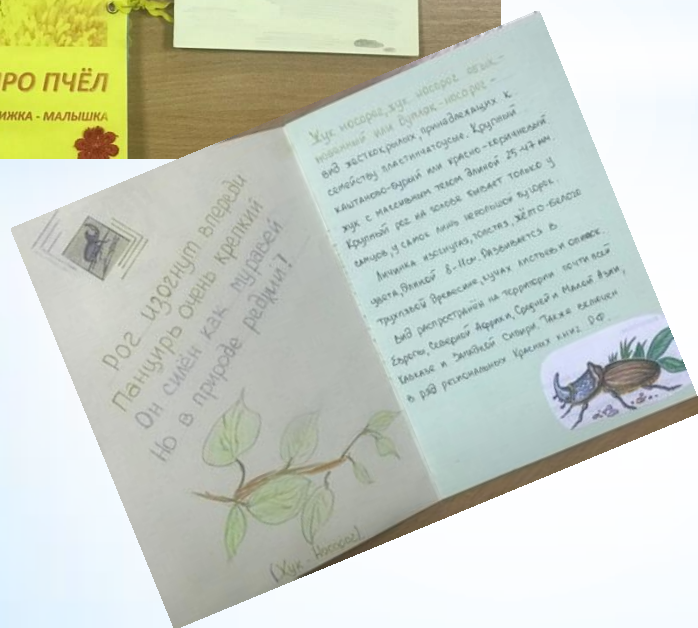 ПРО ПЧЁЛ
ИЖКА - МАЛЫШКА
Рог изогнут впереди
Панцирь очень крепкий
Он силён как муравей
Но в природе редкий!
(Жук - Носорог).
Жук носорог, жук носорог обык-
новенный или бушлак-носорог -
вид жесткокрылых, принадлежащих к
семейству пластинчатоусые. Крупный
каштаново-бурый или красно-коричневый
жук с массивным телом длиной 25-47 мм.
Крупный рог на голове бывает только у
самцов, у самок лишь небольшой бугорок.
Личинка изогнутая, толстая, жёлто-белого
цвета, длиной 8-11см. Развивается в
трухлявой древесине, кучах листьев и опилок.
Вид распространён на территории почти всей
Европы, Северной Африки, Средней и Малой Азии,
Кавказе и Западной Сибири. Также включен
в ряд региональных Красных книг РФ.